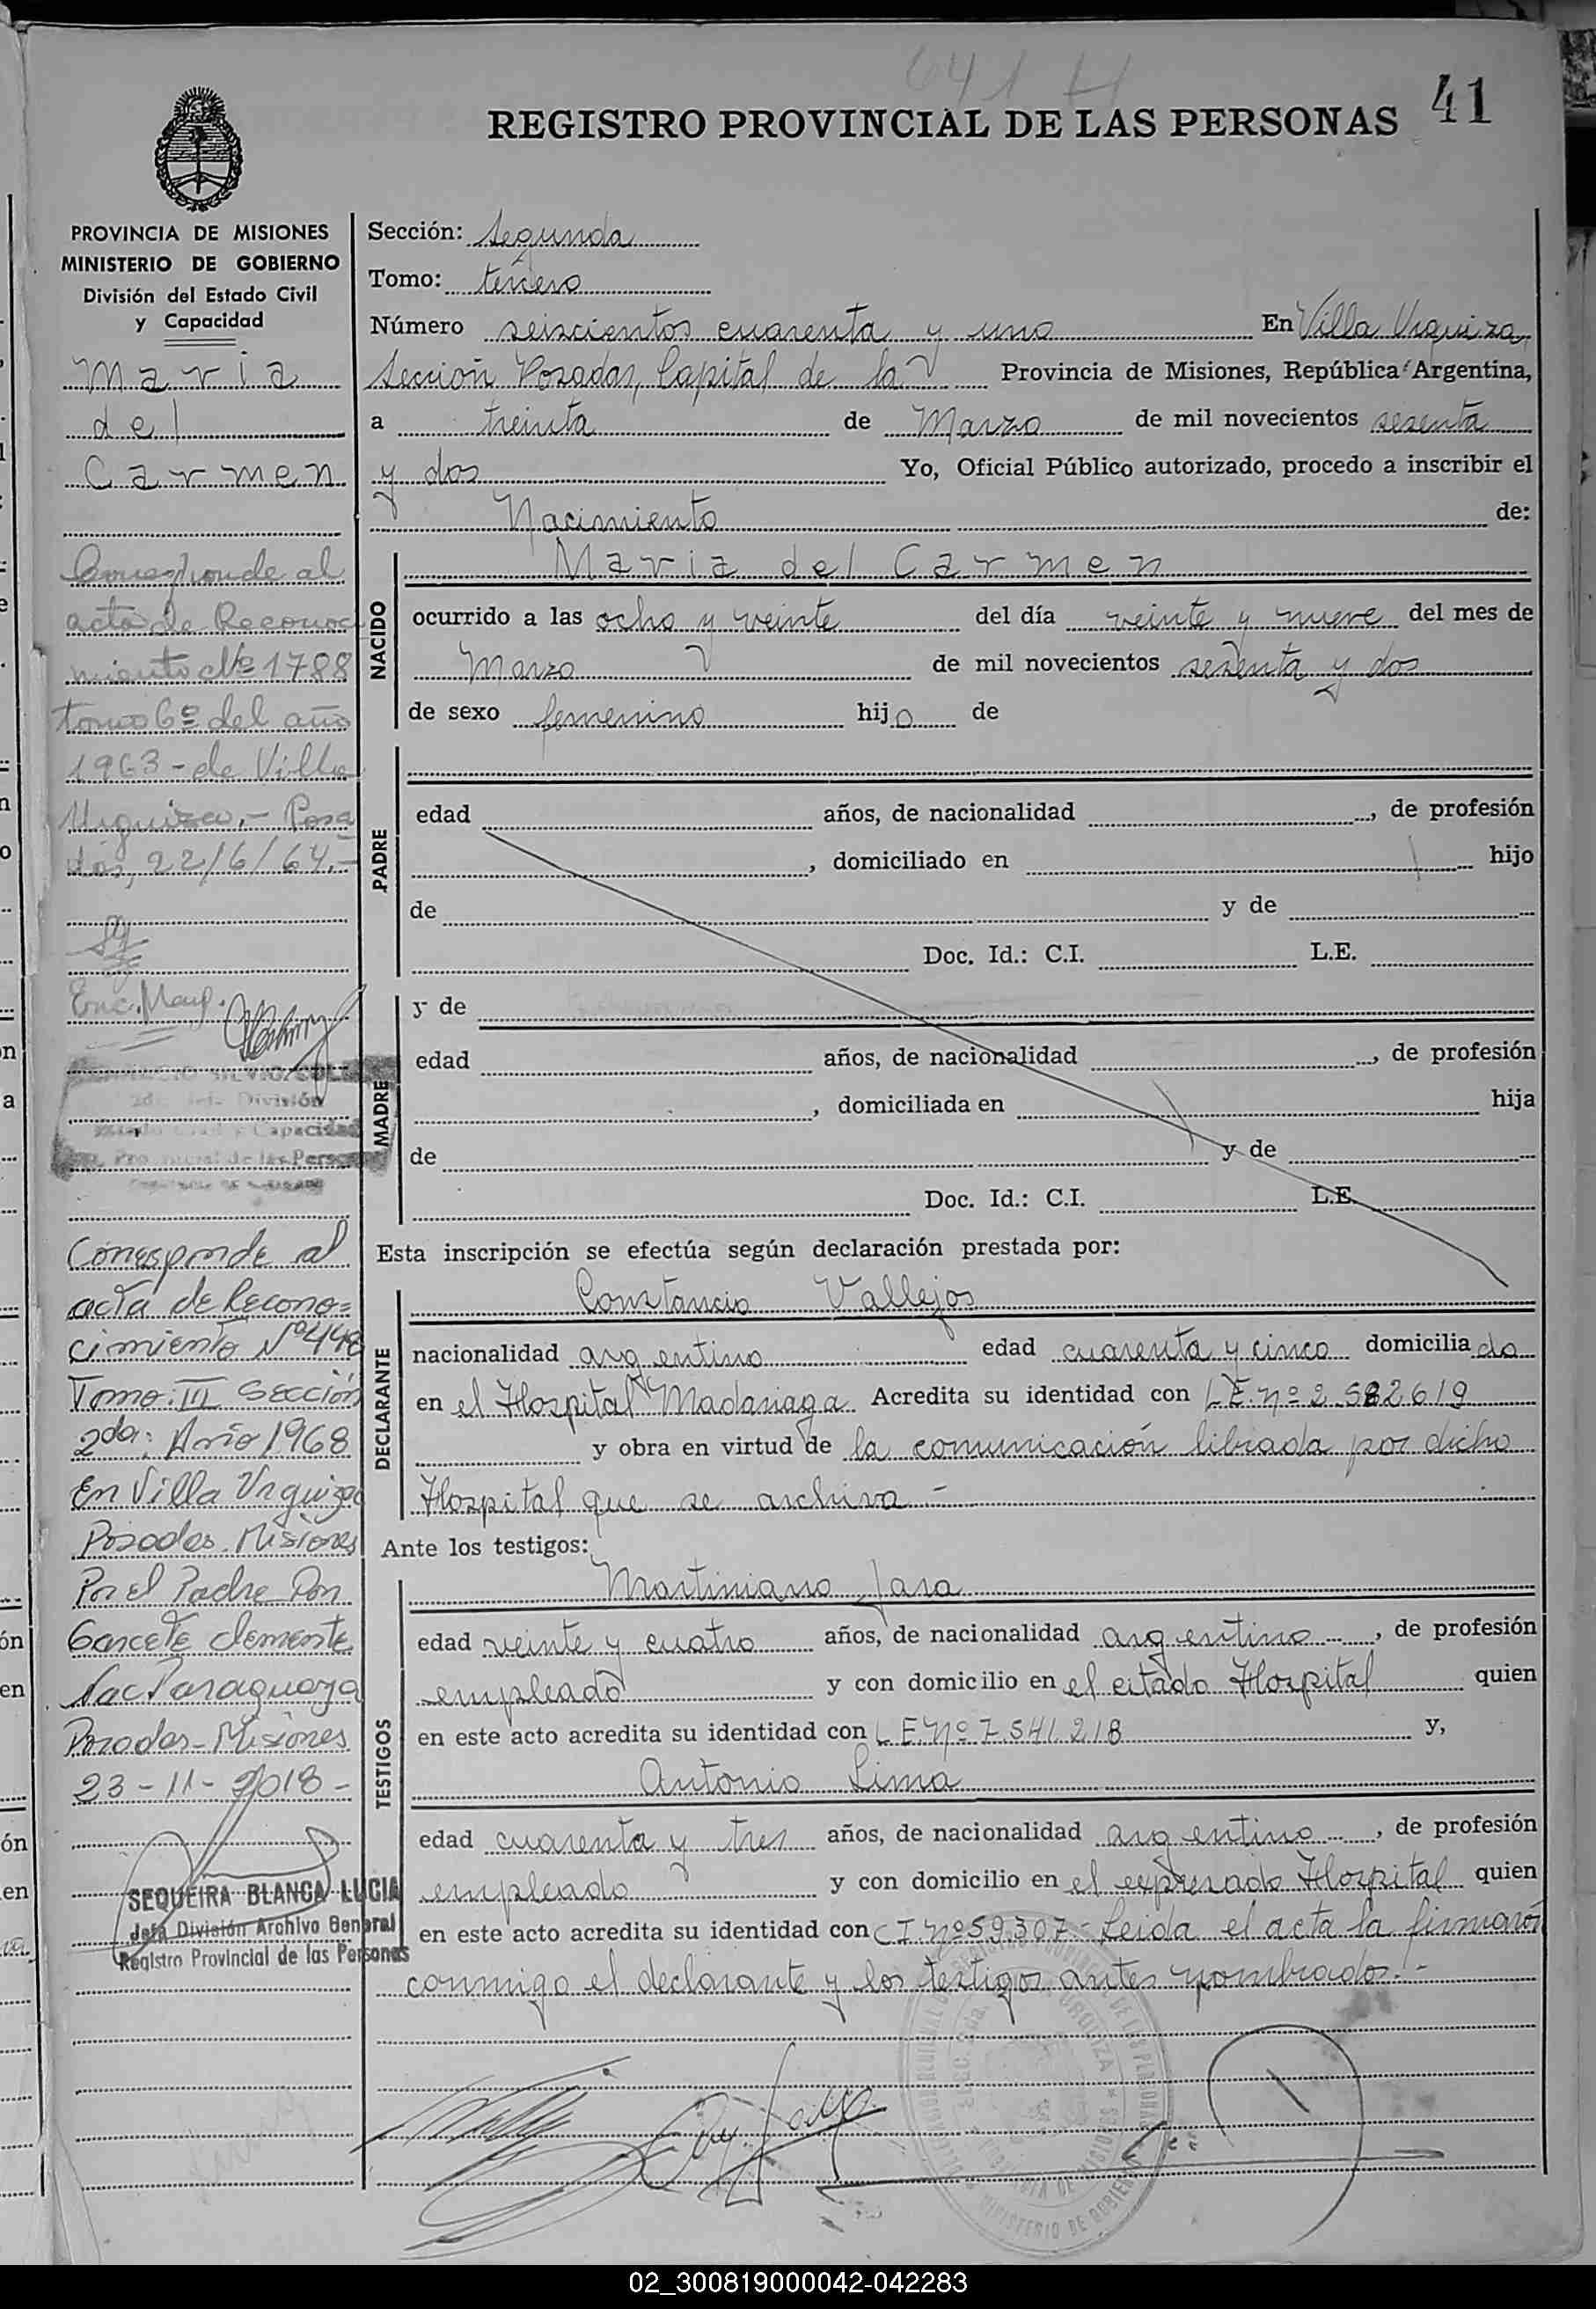 641
41
REGISTRO PROVINCIAL DE LAS PERSONAS
PROVINCIA DE MISIONES
MINISTERIO DE GOBIERNO
División del Estado Civil
y Capacidad
Maria
del
Carmen
Corresponde al
acta de Reconoci
miento Nº 1788
tomo 6º del año
1963 - de Villa
Urquiza.- Posa
das, 22/6/64.-
Enc. Marg.
División
Capacidad
Corresponde al
acta de Recono=
cimiento Nº 448
Tomo: III Sección
2da: Año 1968
En Villa Urquiza
Posadas Misiones
Por el Padre Don
Garcete Clemente
Nac Paraguaya
Posadas - Misiones
23 - 11 - 2018 -
SEQUEIRA BLANCA LUCIA
Jefa División Archivo General
Registro Provincial de las Personas
Sección: Segunda
Tomo: tercero
Número seiscientos cuarenta y uno En Villa Urquiza,
Sección Posadas, Capital de la Provincia de Misiones, República Argentina,
a treinta de Marzo de mil novecientos sesenta
y dos Yo, Oficial Público autorizado, procedo a inscribir el
Nacimiento de:
NACIDO
Maria del Carmen
ocurrido a las ocho y veinte del día veinte y nueve del mes de
Marzo de mil novecientos sesenta y dos
de sexo femenino hijo de
PADRE
edad años, de nacionalidad , de profesión
, domiciliado en hijo
de y de
Doc. Id.: C.I. L.E.
MADRE
y de
edad años, de nacionalidad , de profesión
, domiciliada en hija
de y de
Doc. Id.: C.I. L.E.
Esta inscripción se efectúa según declaración prestada por:
DECLARANTE
Constancio Vallejos
nacionalidad argentino edad cuarenta y cinco domiciliado
en el Hospital Madariaga Acredita su identidad con L.E. nº 2.582619
y obra en virtud de la comunicación librada por dicho
Hospital que se archiva -
Ante los testigos:
TESTIGOS
Martiniano Jara
edad veinte y cuatro años, de nacionalidad argentino , de profesión
empleado y con domicilio en el citado Hospital quien
en este acto acredita su identidad con L.E. Nº 7.541.218 y,
Antonio Lima
edad cuarenta y tres años, de nacionalidad argentino , de profesión
empleado y con domicilio en el expresado Hospital quien
en este acto acredita su identidad con C I nº 59.307 - Leida el acta la firmaron
conmigo el declarante y los testigos antes nombrados.-
02_300819000042-042283